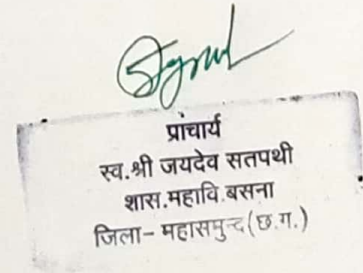 प्राचार्य
स्व.श्री जयदेव सतपथी
शास.महावि.बसना
जिला- महासमुन्द(छ.ग.)